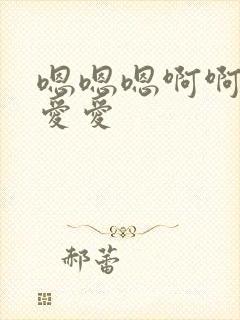 嗯嗯嗯啊啊
爱爱
郝蕾